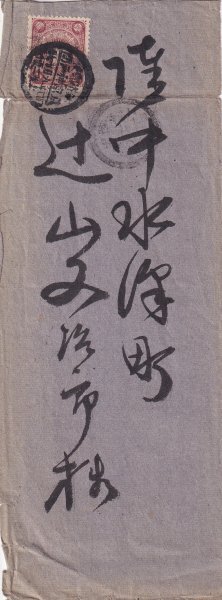 陸中水澤町
辻山又治郎様